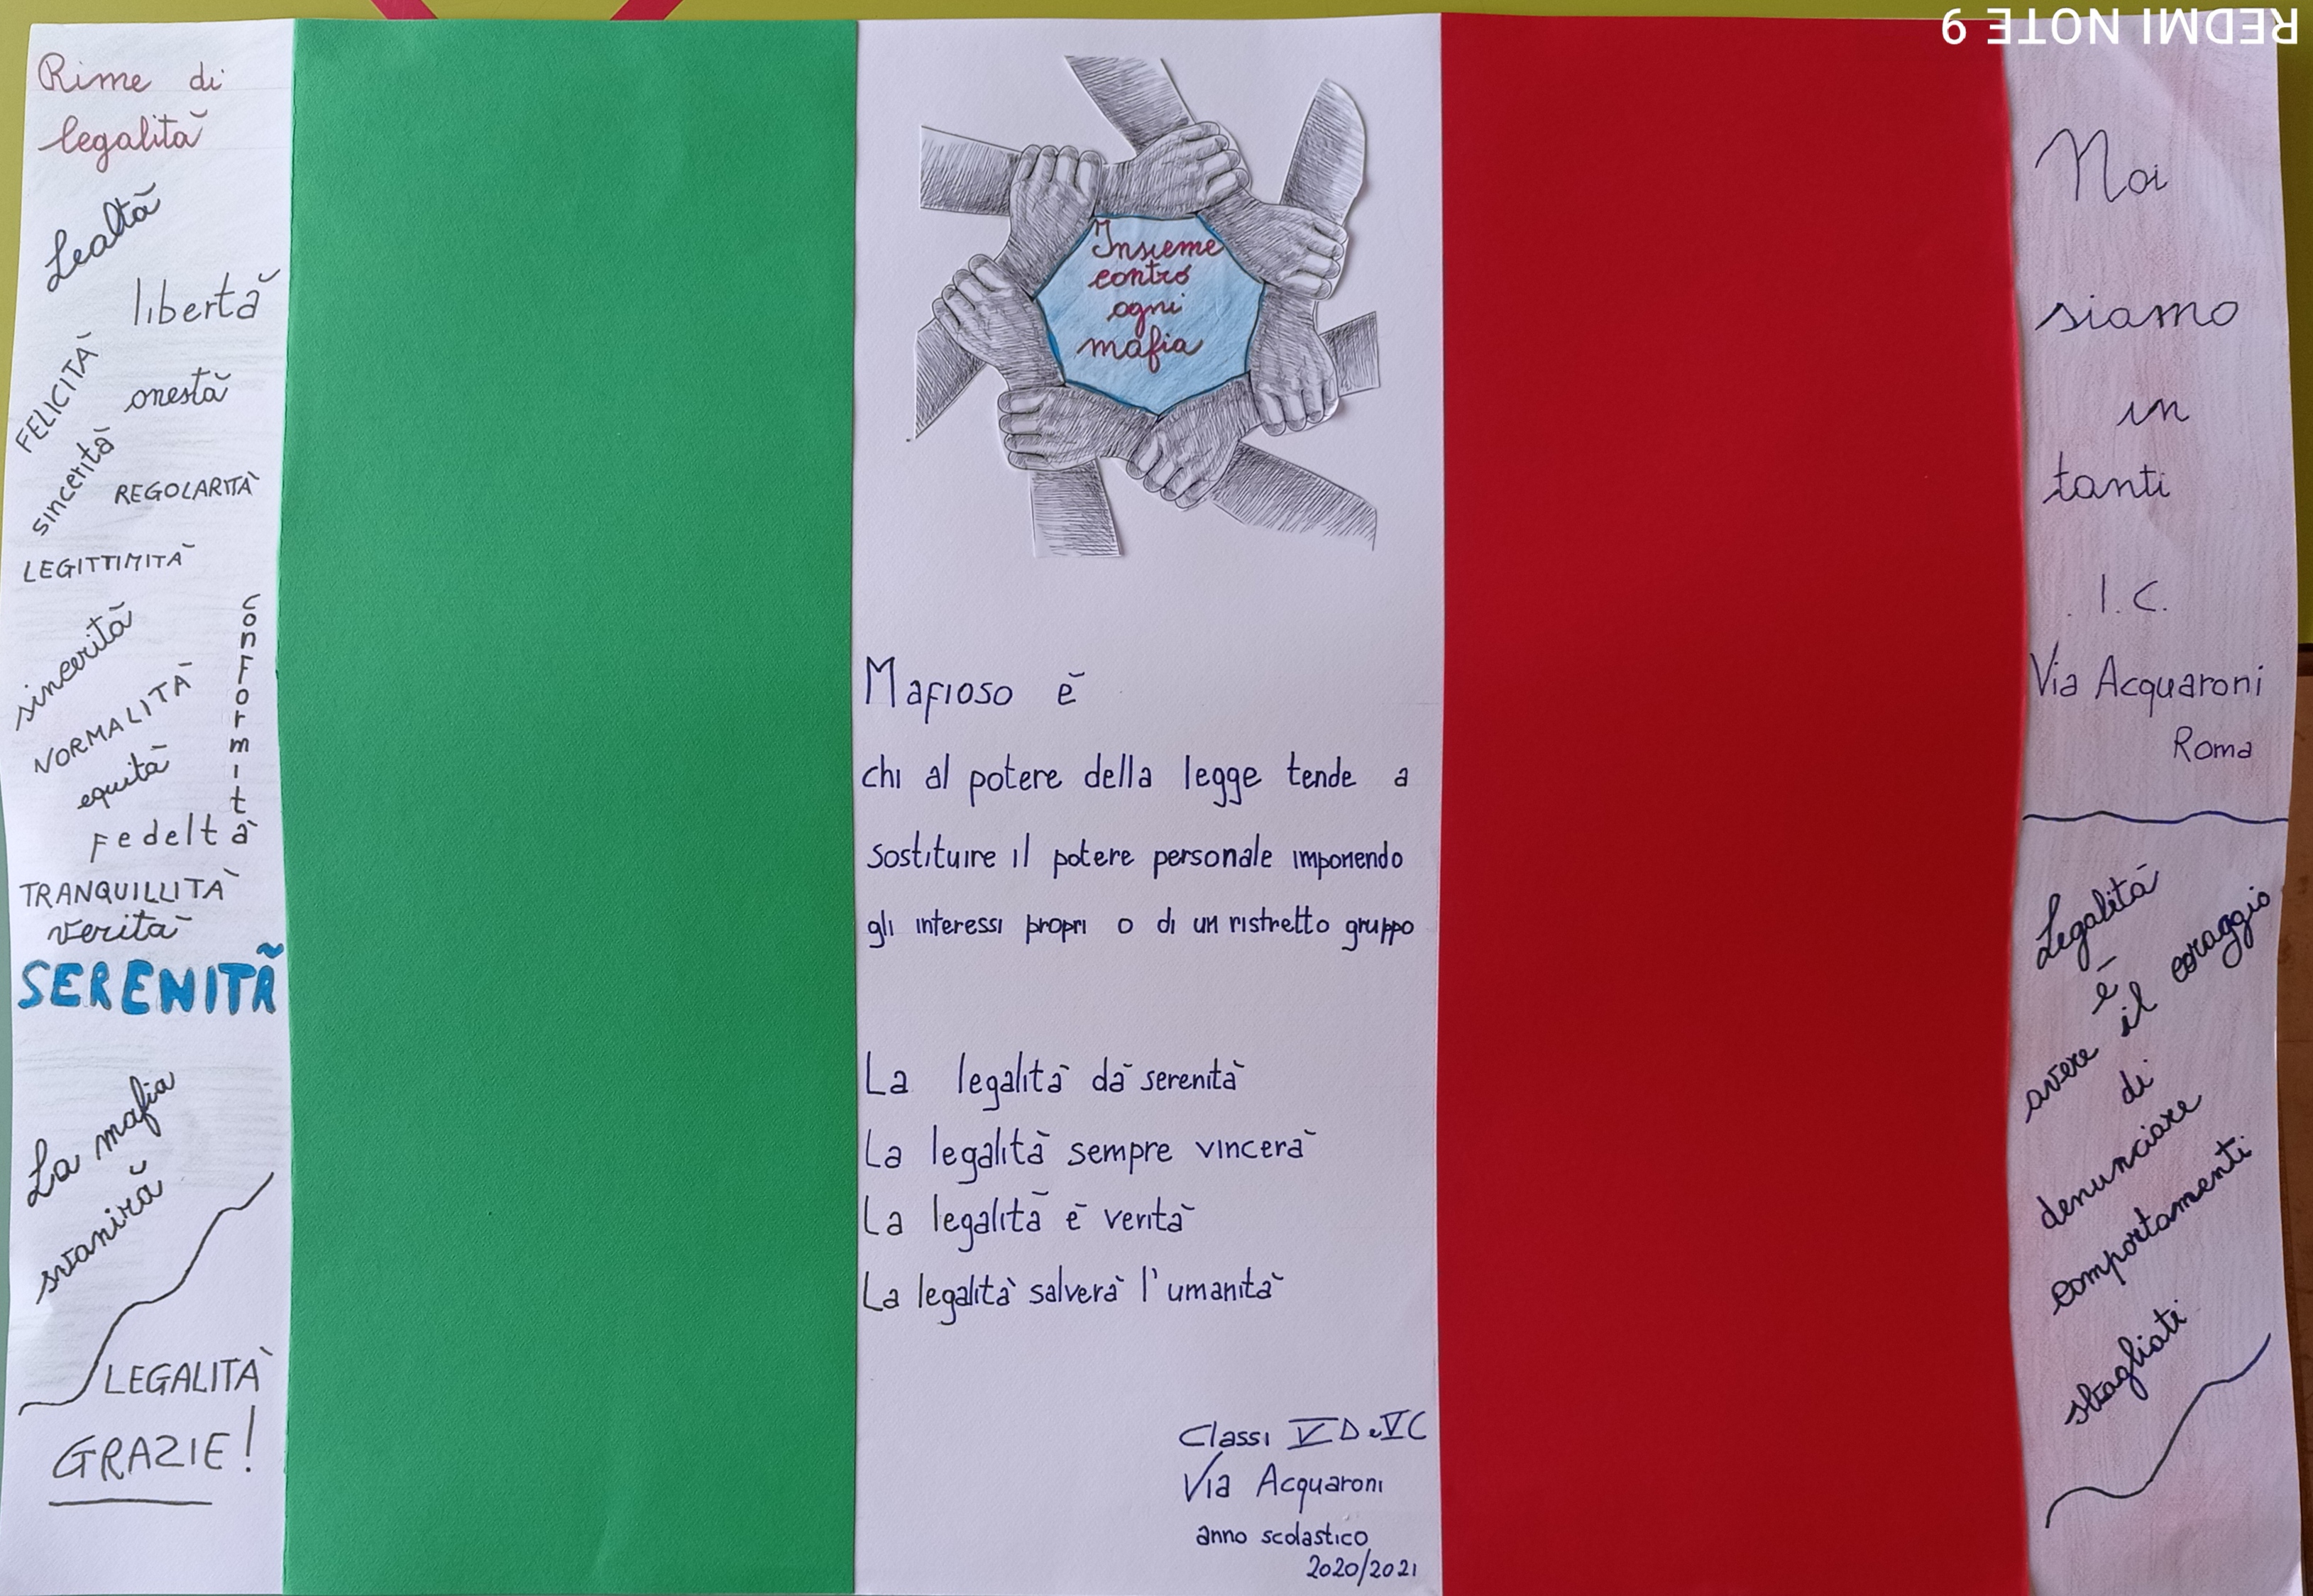 Rime di
legalità
Lealtà
libertà
FELICITÀ
onestà
sincerità
REGOLARITÀ
LEGITTIMITÀ
sincerità
conFormità
NORMALITÀ
equità
Fedeltà
TRANQUILLITÀ
verità
SERENITÀ
La mafia
svanirà
LEGALITÀ
GRAZIE!
Insieme
contro
ogni
mafia
Mafioso è
chi al potere della legge tende a
sostituire il potere personale imponendo
gli interessi propri o di un ristretto gruppo
La legalità dà serenità
La legalità sempre vincerà
La legalità è verità
La legalità salverà l'umanità
Classi V D e V C
Via Acquaroni
anno scolastico
2020/2021
REDMI NOTE 9
Noi
siamo
in
tanti
I.C.
Via Acquaroni
Roma
Legalità
è
avere il coraggio
di
denunciare
comportamenti
sbagliati